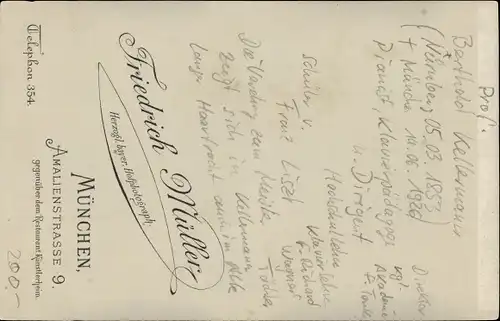 Prof.
Berthold Kellermann
(Nürnberg 05.03.1853
+ München 14.06.1926)
Pianist, Klavierpädagoge
u. Dirigent
Hochschullehrer
Schüler v.
Franz Liszt
Klavierlehrer
v.
Wagners
Töchter
Direktor
kgl.
Akademie
Die
zum
zeigt sich in Kellermanns
langer Haarpracht auch im Alter
Friedrich Müller
Herzogl. bayer. Hofphotograph.
MÜNCHEN,
AMALIENSTRASSE 9.
gegenüber dem Restaurant Künstlerheim.
Telephon 354.
200.-